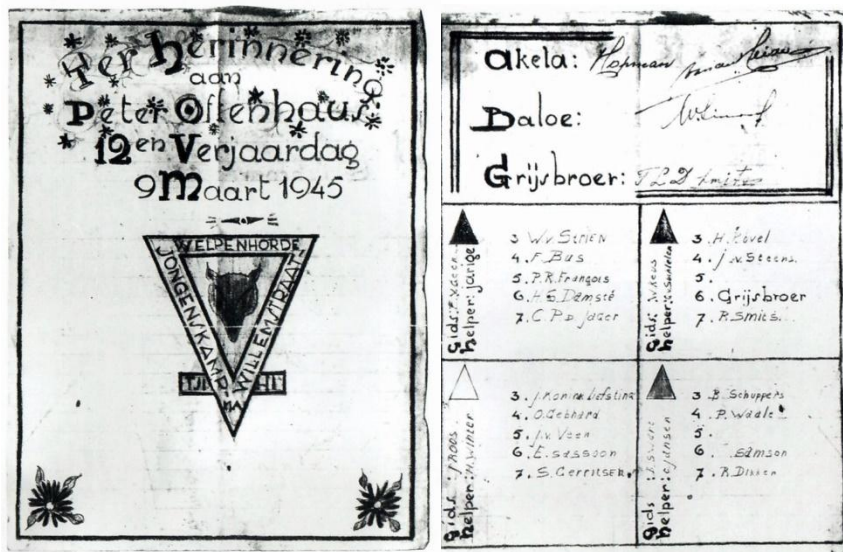 Ter herinnering
aan
Peter Oftenhaus'
12en Verjaardag
9 Maart 1945
WELPENHORDE
JONGENSKAMP
WILLEMSTRAAT
TJI
HI
MA
Akela: Hopman
Baloe:
Grijsbroer: T L D Smits
Gids:
helper: jarige
3 W.v STRIEN
4. F. Bus
5. P.R. François
6. H.S. Damsté
7. C. P.D. Jager
Gids: W Roos
helper:
3. H. Hövel
4. J. v. Steens.
5.
6. Grijsbroer
7. R. Smits.
Gids: J ROOS
helper: H. WINTER
3. J. Konink Liefsting
4. O. Gebhard
5. J.v. Veen
6. E. SASSOON
7. S. GERRITSEN
Gids:
helper: C. Jansen
3 B. Schuppers
4. P. Waale
5.
6. SAMSON
7. R. Dikken